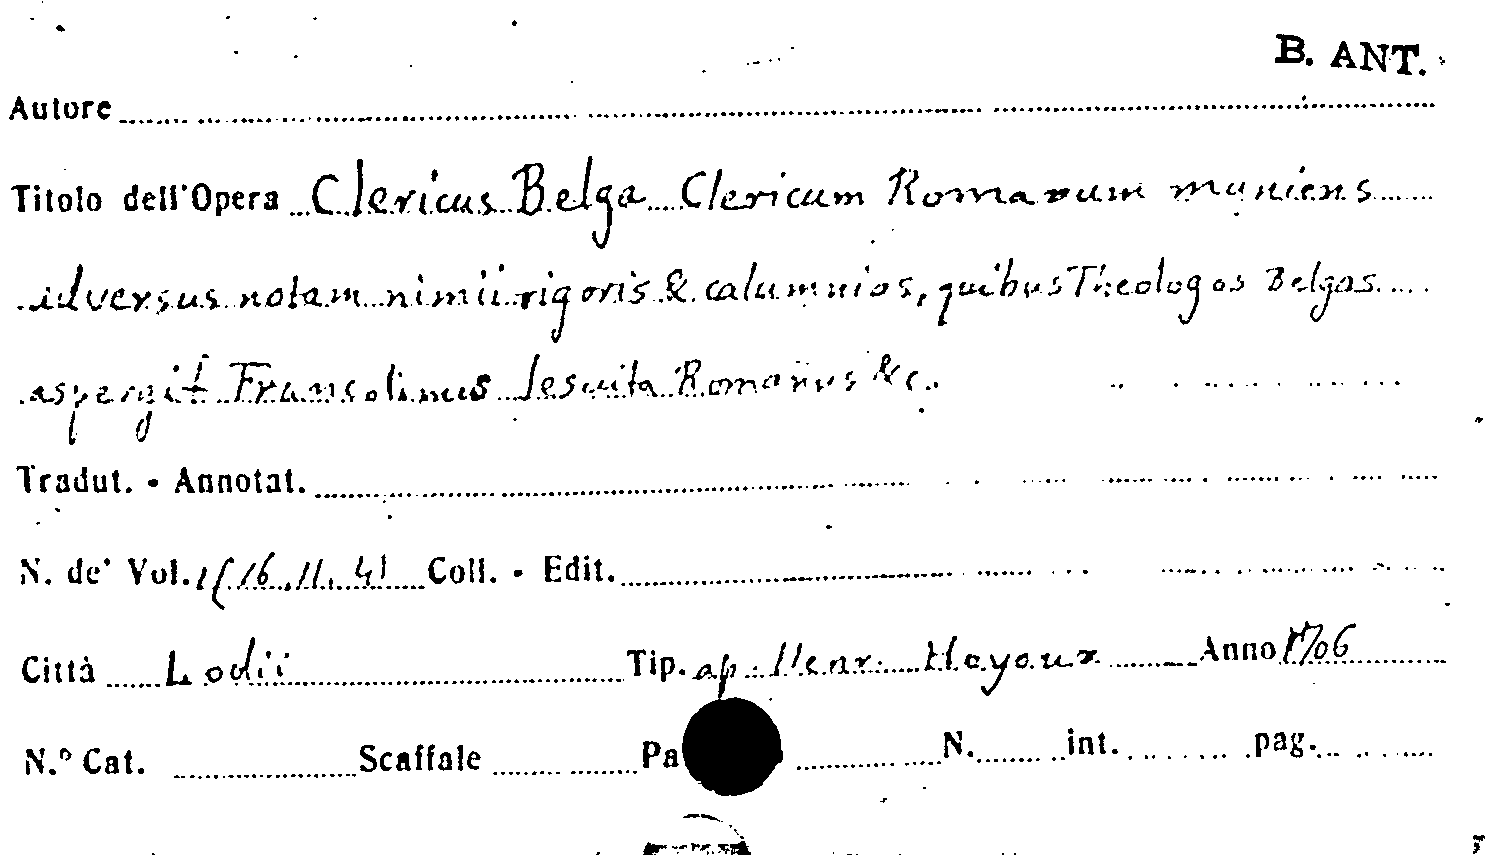 B. ANT.
Autore
Titolo dell'Opera Clericus Belga Clericum Romanum muniens
adversus notam nimii rigoris & calumnias, quibus Theologos Belgas
aspergit Fransolinus Jesuita Romanus &c.
Tradut. - Annotat.
N. de' Vol. 1/ 16.11.41 Coll. - Edit.
Città Lodii Tip. ap. Henr. Hoyoux Anno 1706
N.° Cat. Scaffale Pa N. int. pag.